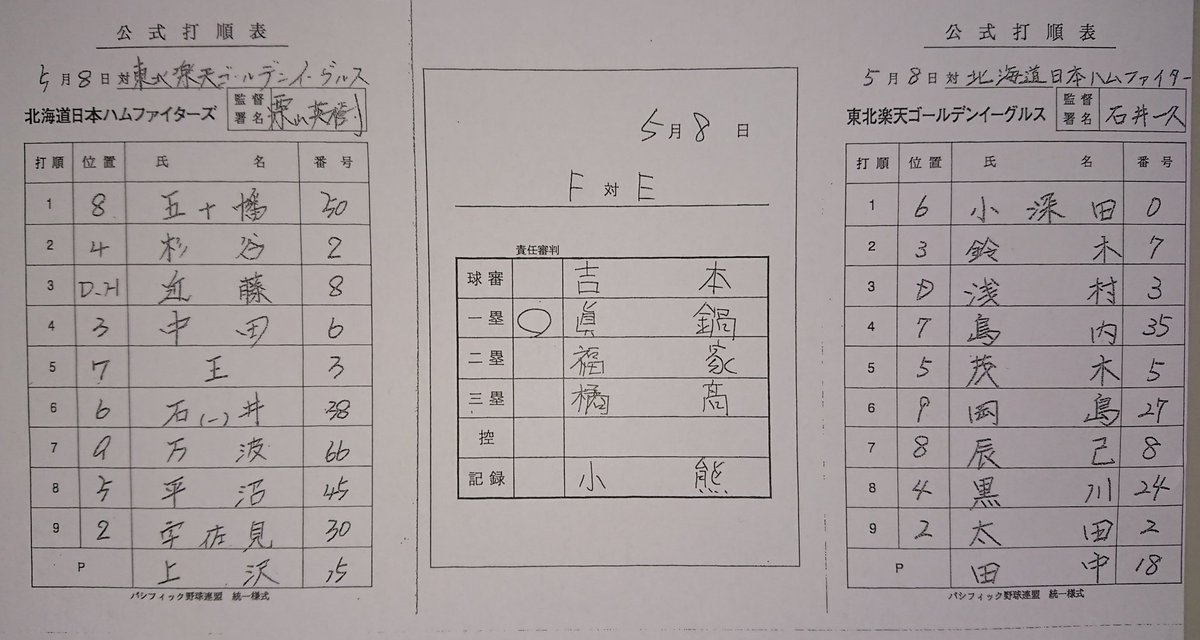 公式打順表
5月8日対東北楽天ゴールデンイーグルス
北海道日本ハムファイターズ 監督署名 栗山英樹
打順 位置 氏名 番号
1 8 五十幡 50
2 4 杉谷 2
3 D.H 近藤 8
4 3 中田 6
5 7 王 3
6 6 石(一)井 38
7 9 万波 66
8 5 平沼 45
9 2 宇佐見 30
P 上沢 15
パシフィック野球連盟 統一様式
5月8日
F対E
責任審判
球審 吉本
一塁 ○ 眞鍋
二塁 福家
三塁 橘髙
控
記録 小熊
公式打順表
5月8日対北海道日本ハムファイター
東北楽天ゴールデンイーグルス 監督署名 石井一久
打順 位置 氏名 番号
1 6 小深田 0
2 3 鈴木 7
3 D 浅村 3
4 7 島内 35
5 5 茂木 5
6 9 岡島 27
7 8 辰己 8
8 4 黒川 24
9 2 太田 2
P 田中 18
パシフィック野球連盟 統一様式